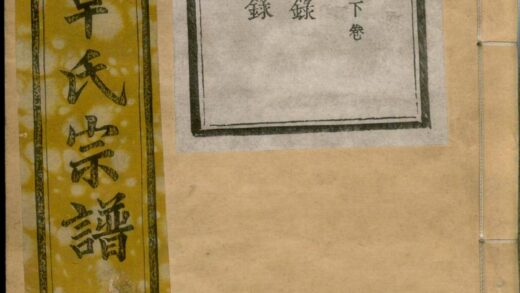 下卷
錄
錄
氏宗譜